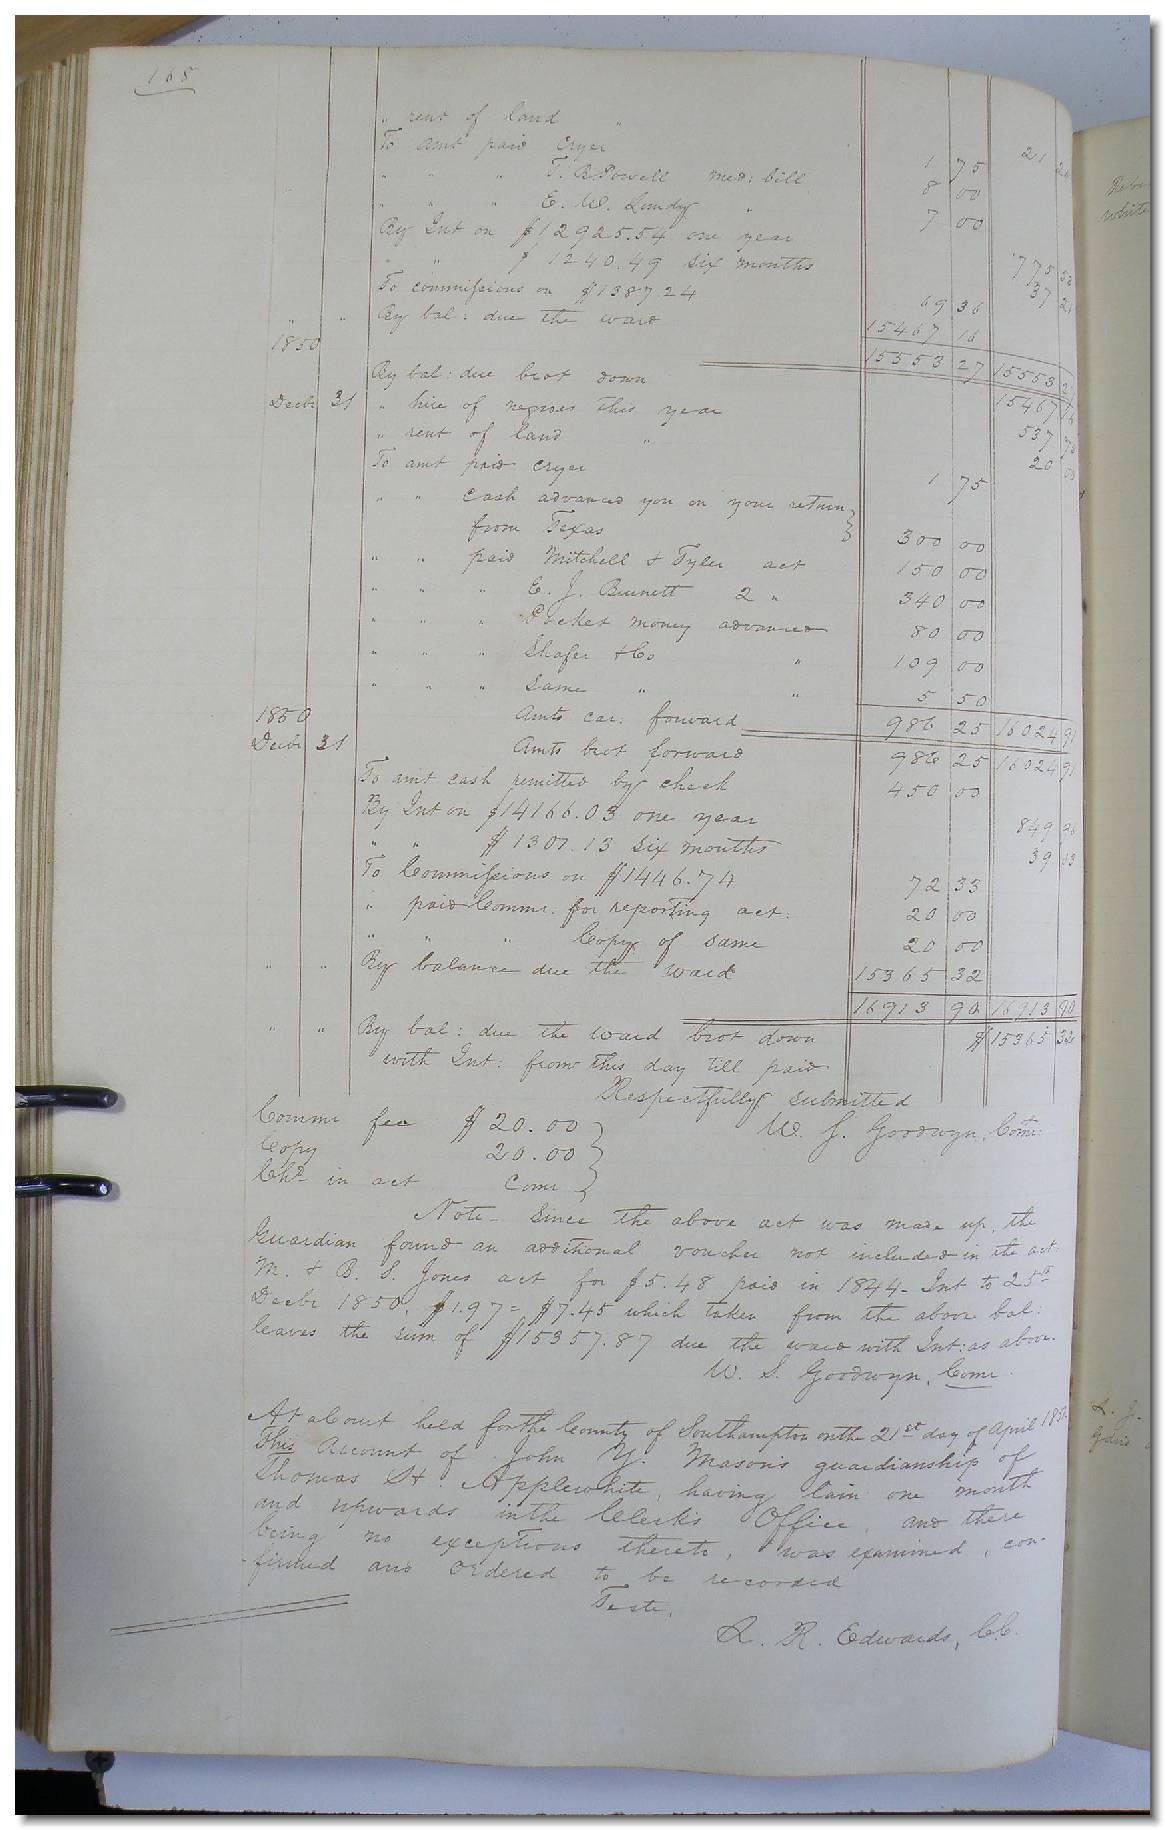 168
" rent of land " 21 2
To amt paid Cryer 1 75
" " " T. B. Powell med: bill 8 00
" " " E. W. Lundy " 7 00
By Int on $12925.54 one year 775 5
" " $1240.49 six months 37 2
To commissions on $1387.24 69 36
" " By bal: due the ward 15467 16
1850 15553 27 15553 2
By bal: due brot down 15467 1
Decbr 31 " hire of negroes this year 537 7
" rent of land " 20 00
To amt paid cryer 1 75
" " Cash advanced you on your return
from Texas 300 00
" " paid Mitchell & Tyler act 150 00
" " " E. J. Burnett 2 " 340 00
" " " Pocket money advanced 80 00
" " " Shafer & Co " 109 00
" " " Same " " 5 50
1850 Amts car: forward 986 25 16024 91
Decbr 31 Amts brot forward 986 25 16024 91
To amt cash remitted by check 450 00
By Int on $14166.03 one year 849 96
" " $1307.13 six months 39 03
To Commissions on $1446.74 72 33
" paid Commr. for reporting act: 20 00
" " " Copy of same 20 00
" " By balance due the ward 15365 32
16913 90 16913 90
" " By bal: due the ward brot down $15365 32
with Int: from this day till paid
Respectfully submitted
Commr fee $20.00 W. S. Goodwyn, Comr:
Copy 20.00
Chd in act Comr
Note - Since the above act was made up, the
Guardian found an additional voucher not included in the act:
M. & B. S. Jones act for $5.48 paid in 1844 - Int to 25th
Decbr 1850, $1.97 = $7.45 which taken from the above bal:
leaves the sum of $15357.87 due the ward with Int: as above.
W. S. Goodwyn, Comr
At a Court held for the County of Southampton on the 21st day of April 185
This Account of John Y. Mason's guardianship of
Thomas H. Applewhite, having lain one month
and upwards in the Clerk's Office, and there
being no exceptions thereto, was examined, con-
firmed and ordered to be recorded
Teste,
L. R. Edwards, C.C.